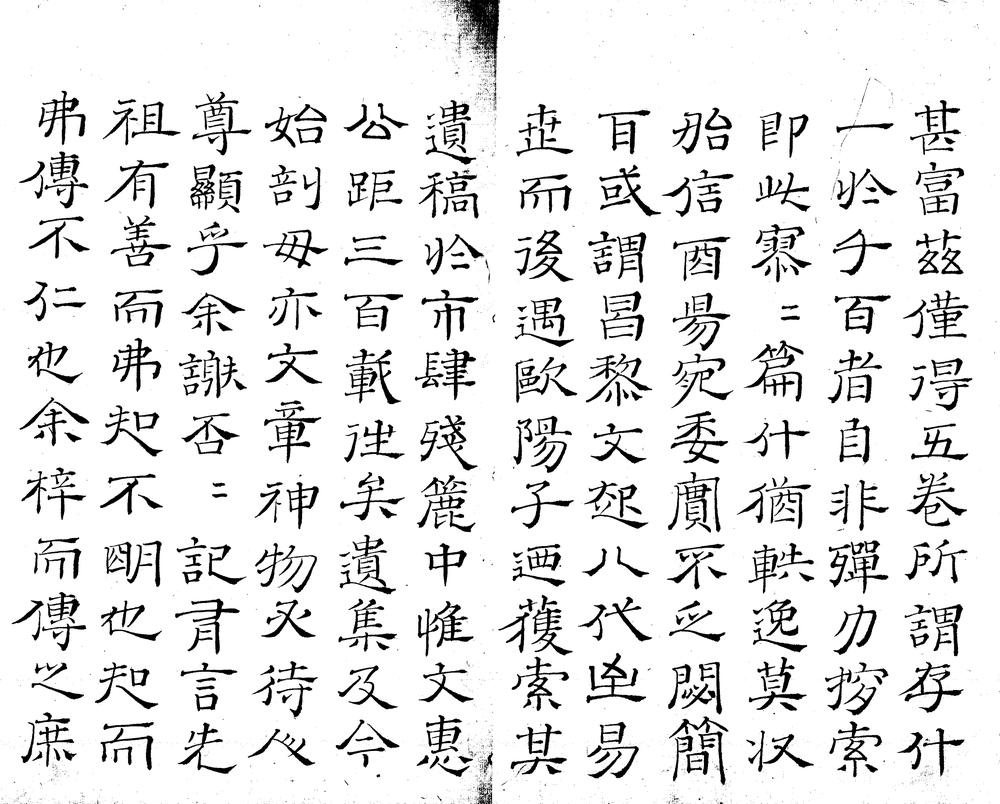 甚富茲僅得五卷所謂存什
一於千百者自非殫力搜索
即此寥二篇什猶軼逸莫収
殆信酉昜宛委實不乏閟簡
耳或謂昌黎文起八代易
世而後遇歐陽子廼獲索其
遺稿於市肆殘簏中惟文惠
公距三百載往矣遺集及今
始剖毋亦文章神物必待人
尊顯乎余謝否二記有言先
祖有善而弗知不明也知而
弗傳不仁也余梓而傳之庶